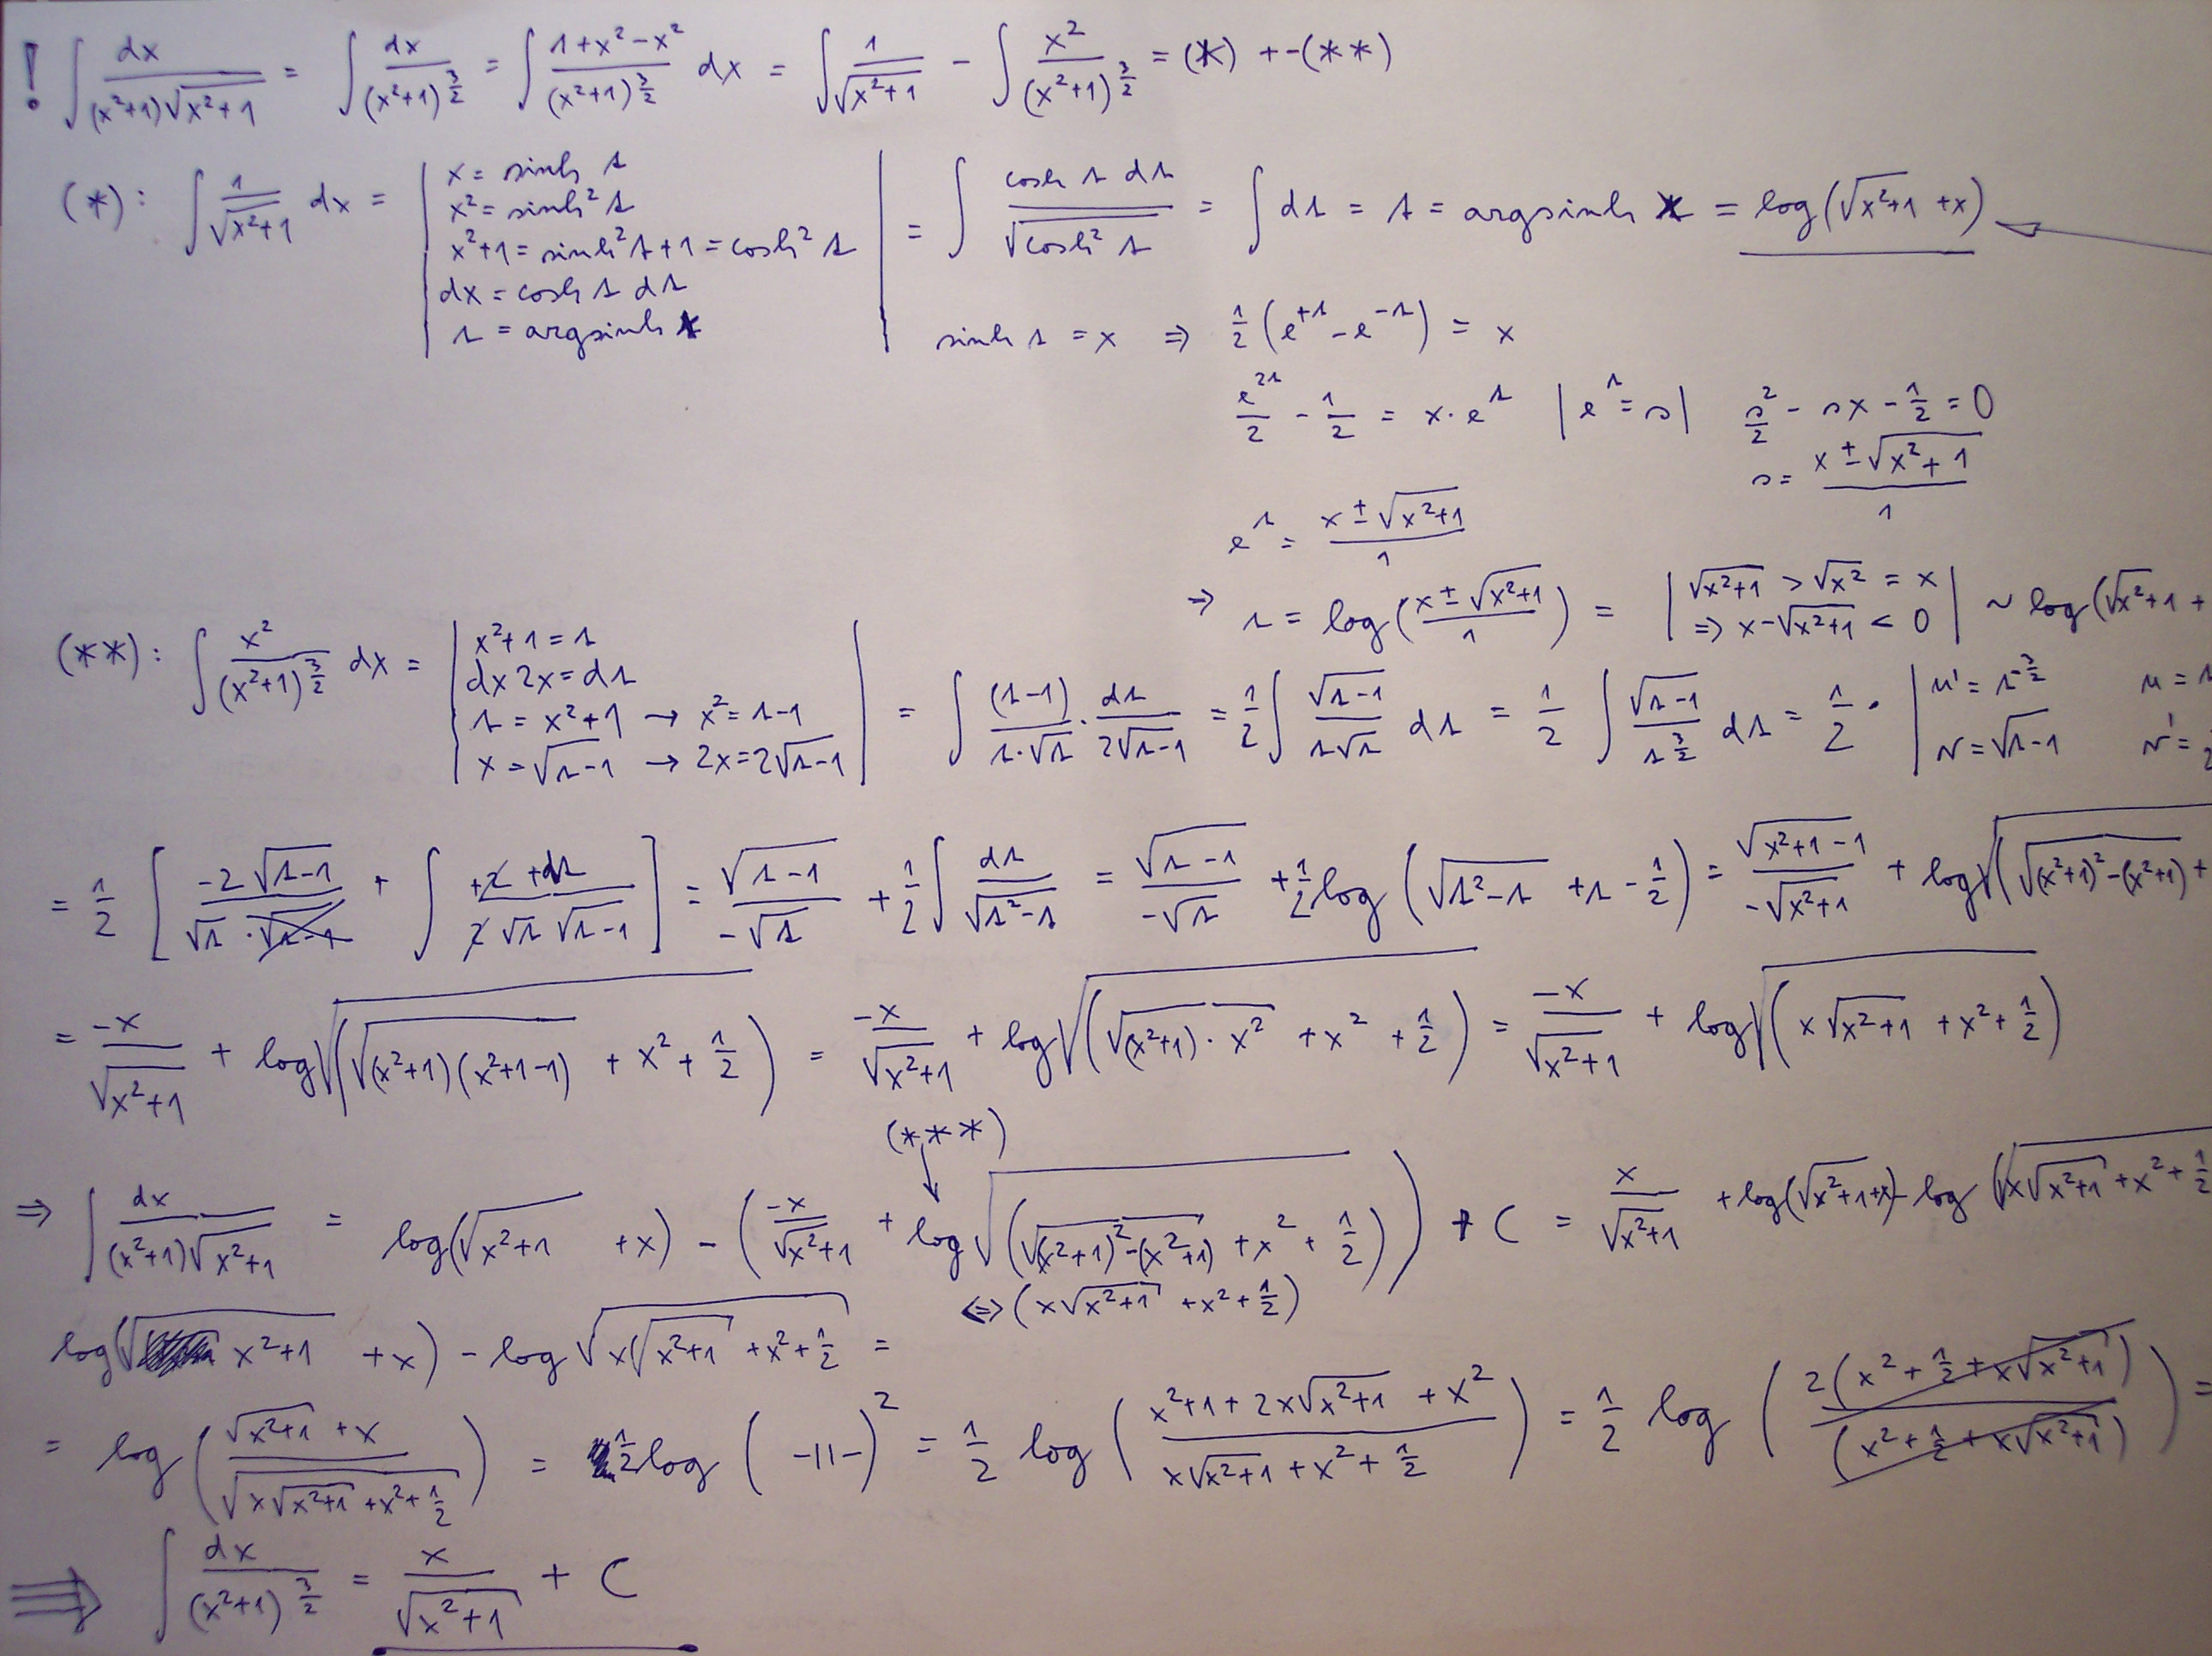 ! ∫ dx/((x²+1)√(x²+1)) = ∫ dx/(x²+1)^(3/2) = ∫ (1+x²-x²)/(x²+1)^(3/2) dx = ∫ 1/√(x²+1) - ∫ x²/(x²+1)^(3/2) = (*) + -(**)
(*): ∫ 1/√(x²+1) dx = | x = sinh t
x² = sinh² t
x²+1 = sinh² t + 1 = cosh² t
dx = cosh t dt
t = argsinh x | = ∫ cosh t dt/√(cosh² t) = ∫ dt = t = argsinh x = log(√(x²+1) + x)
sinh t = x ⇒ 1/2 (e^(+t) - e^(-t)) = x
e^(2t)/2 - 1/2 = x·e^t | e^t = s | s²/2 - sx - 1/2 = 0
s = (x ± √(x²+1))/1
e^t = (x ± √(x²+1))/1
⇒ t = log((x ± √(x²+1))/1) = | √(x²+1) > √x² = x
⇒ x - √(x²+1) < 0 | ~ log(√x²+1 +
(**): ∫ x²/(x²+1)^(3/2) dx = | x²+1 = t
dx 2x = dt
t = x²+1 → x² = t-1
x = √(t-1) → 2x = 2√(t-1) | = ∫ (t-1)/(t·√t) · dt/(2√(t-1)) = 1/2 ∫ √(t-1)/(t√t) dt = 1/2 ∫ √(t-1)/t^(3/2) dt = 1/2 · | u' = t^(-3/2) u =
v = √(t-1) v' =
= 1/2 [ -2√(t-1)/(√t · √(t-1)) + ∫ +2 + dt/(2√t √(t-1)) ] = √(t-1)/(-√t) + 1/2 ∫ dt/√(t²-t) = √(t-1)/(-√t) + 1/2 log(√(t²-t) + t - 1/2) = √(x²+1-1)/(-√(x²+1)) + log√(√((x²+1)²-(x²+1)) +
= -x/√(x²+1) + log√(√((x²+1)(x²+1-1)) + x² + 1/2) = -x/√(x²+1) + log√(√((x²+1)·x²) + x² + 1/2) = -x/√(x²+1) + log√(x√(x²+1) + x² + 1/2)
(***)
⇒ ∫ dx/((x²+1)√(x²+1)) = log(√(x²+1) + x) - (-x/√(x²+1) + log√(√((x²+1)²-(x²+1)) + x² + 1/2)) + C = x/√(x²+1) + log(√(x²+1)+x) - log√(x√(x²+1) + x² + 1/2
⇔ (x√(x²+1) + x² + 1/2)
log(√(x²+1) + x) - log√(x√(x²+1) + x² + 1/2) =
= log((√(x²+1) + x)/√(x√(x²+1) + x² + 1/2)) = 1/2 log( -11- )² = 1/2 log((x²+1+2x√(x²+1) + x²)/(x√(x²+1) + x² + 1/2)) = 1/2 log(2(x² + 1/2 + x√(x²+1))/(x² + 1/2 + x√(x²+1))) =
⇒ ∫ dx/(x²+1)^(3/2) = x/√(x²+1) + C